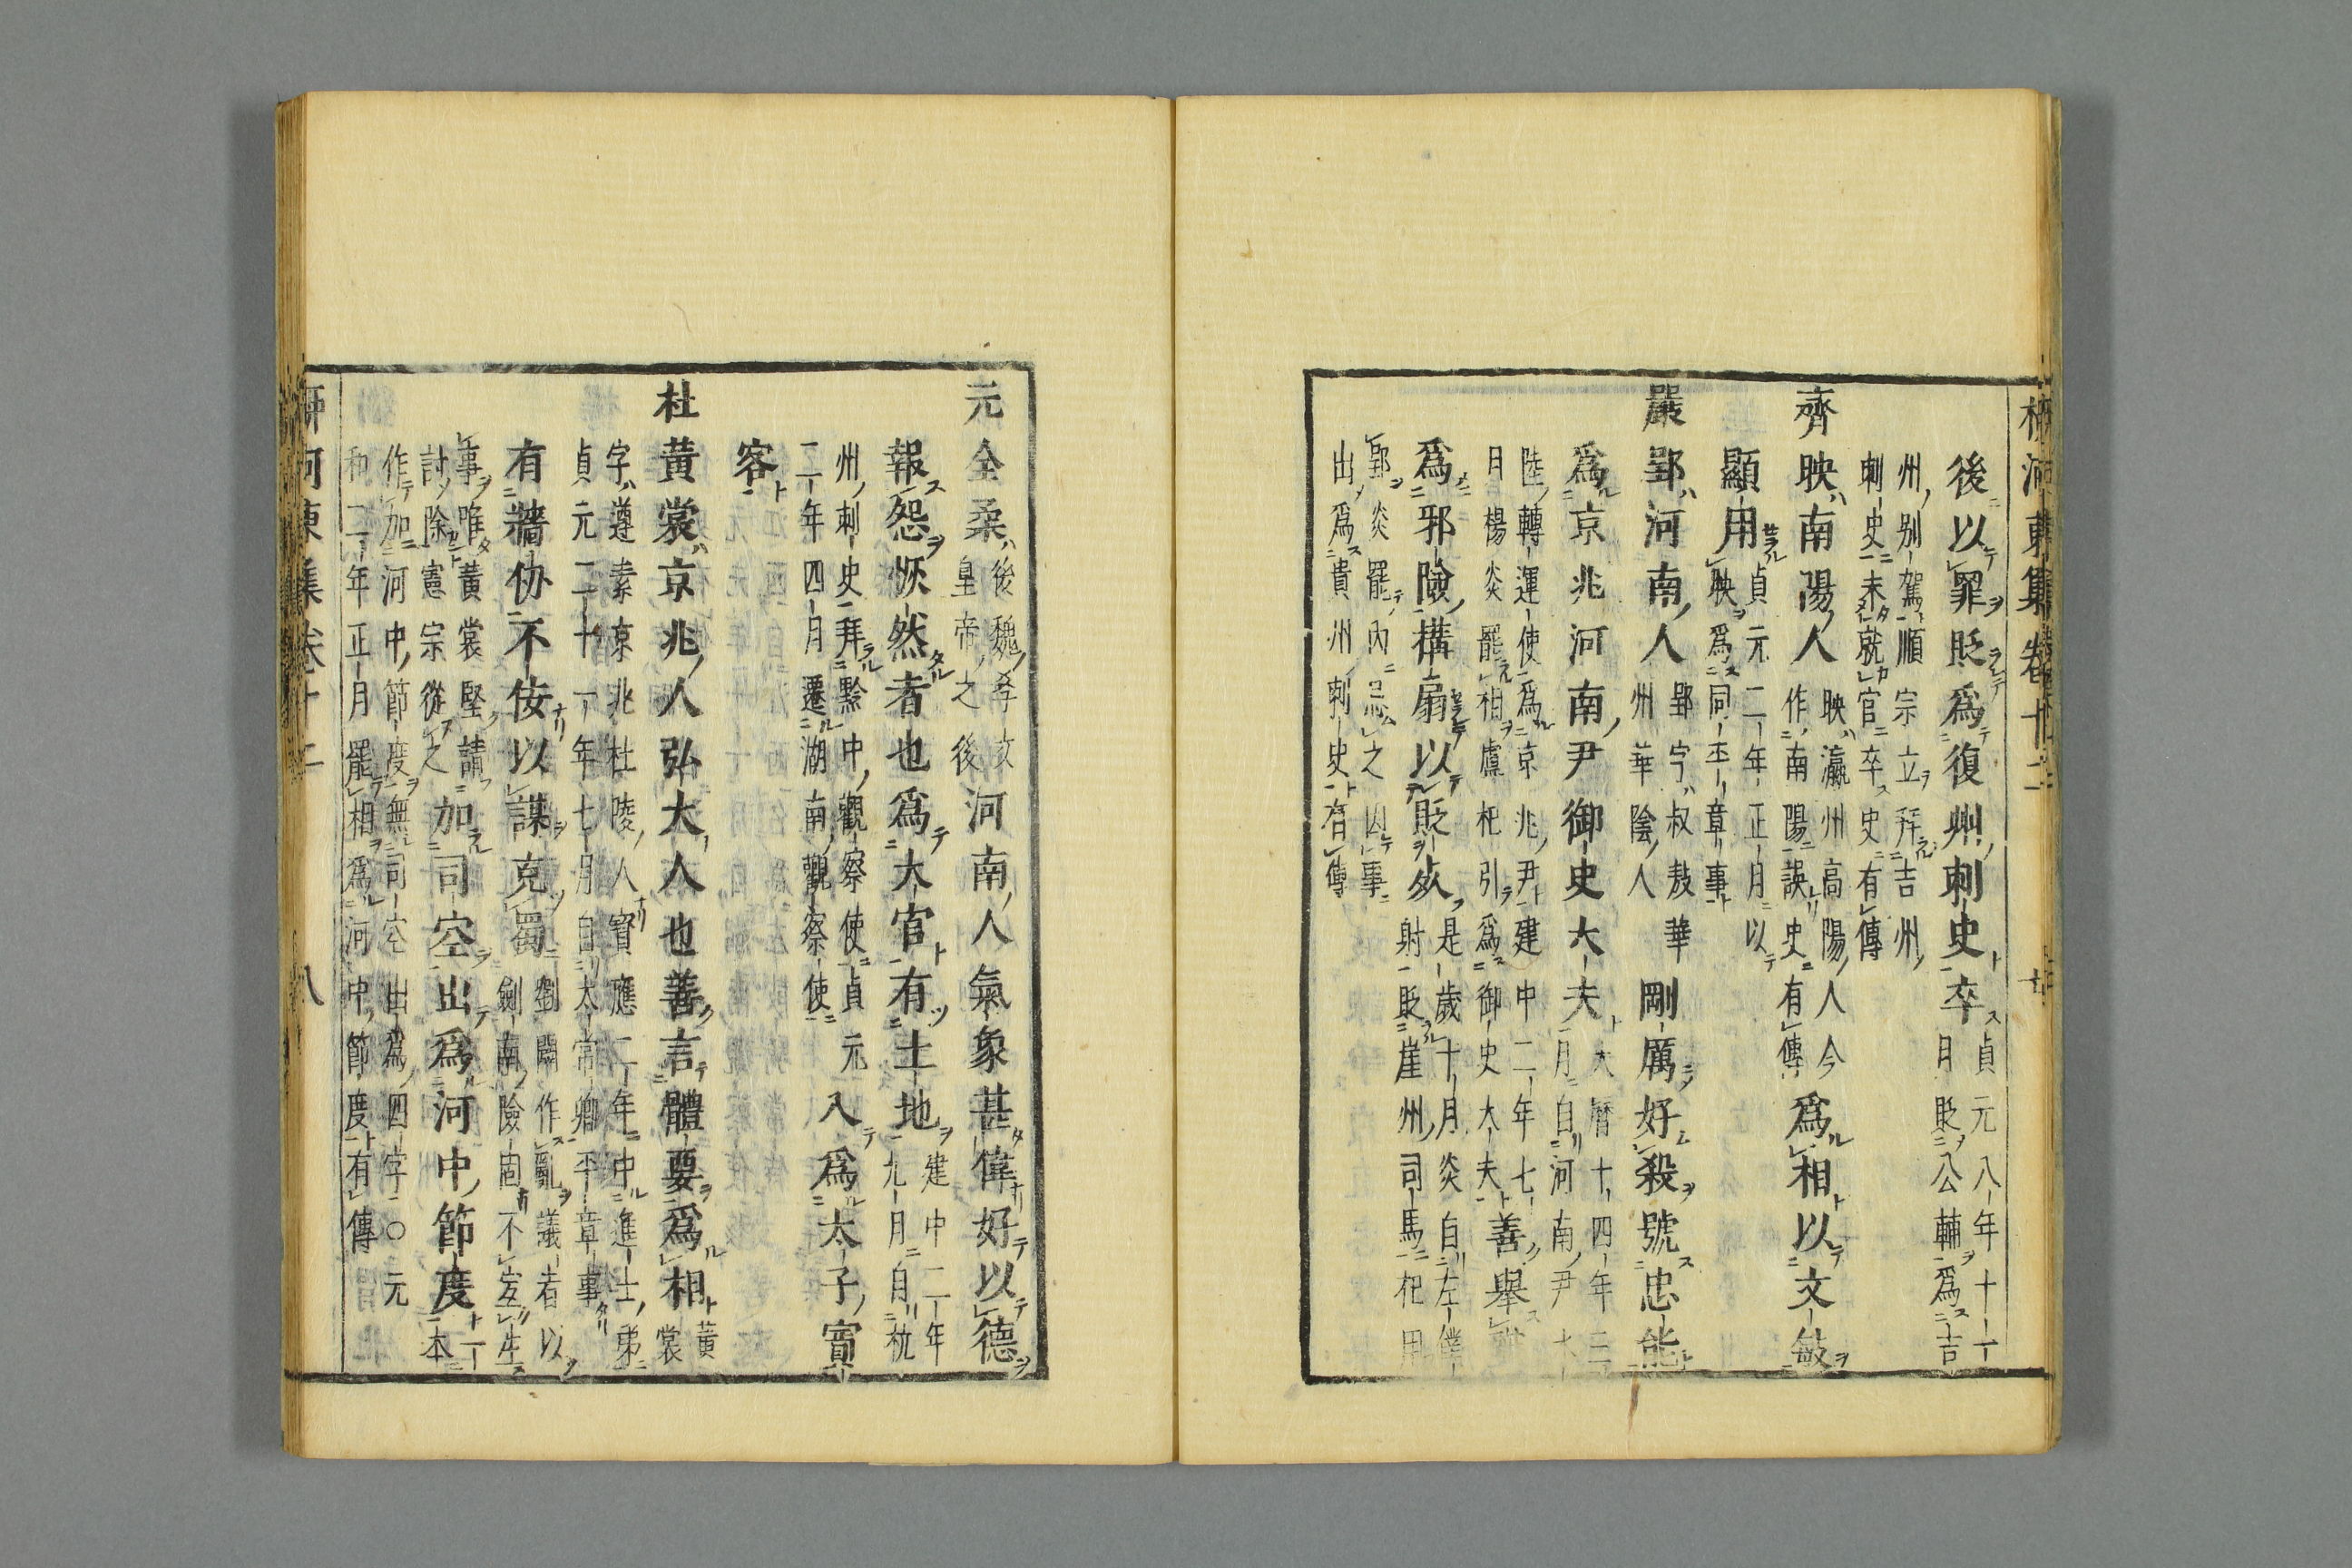 柳河東集卷十二
後以罪貶爲復州刺史卒
貞元八年十一
月貶公輔爲吉
州別駕順宗立拜吉州
刺史未就官卒史有傳
齊映南陽人
映瀛州高陽人今
作南陽誤史有傳
爲相以文敏
顯用
貞元二年正月以
映爲同平章事
嚴郢河南人
郢字叔敖華
州華陰人
剛厲好殺號忠能
爲京兆河南尹御史大夫
大曆十四年三
月自河南尹水
陸轉運使爲京兆尹建中二年七
月楊炎罷相盧杞引爲御史大夫
善舉
爲邪險構扇以貶死
是歲十月炎自左僕
射貶崖州司馬杞用
郢炎罷內忌之因事
出爲貴州刺史有傳
元全柔
後魏孝文
皇帝之後
河南人氣象甚偉好以德
報怨恢然者也爲大官有土地
建中二年
九月自杭
州刺史拜黔中觀察使貞元
二年四月遷湖南觀察使
入爲太子賓
客
杜黄裳京兆人弘大人也善言體要爲相
黄
裳
字遵素京兆杜陵人寶應二年中進士第
貞元二十一年七月自太常卿平章事
有牆仞不佞以謀克蜀
劉闢作亂議者以
劍南險固不宜生
事唯黄裳堅請
討除憲宗從之
加司空出爲河中節度
一
本
作加河中節度無司空出爲四字〇元
和二年正月罷相爲河中節度有傳
柳河東集卷十二 八